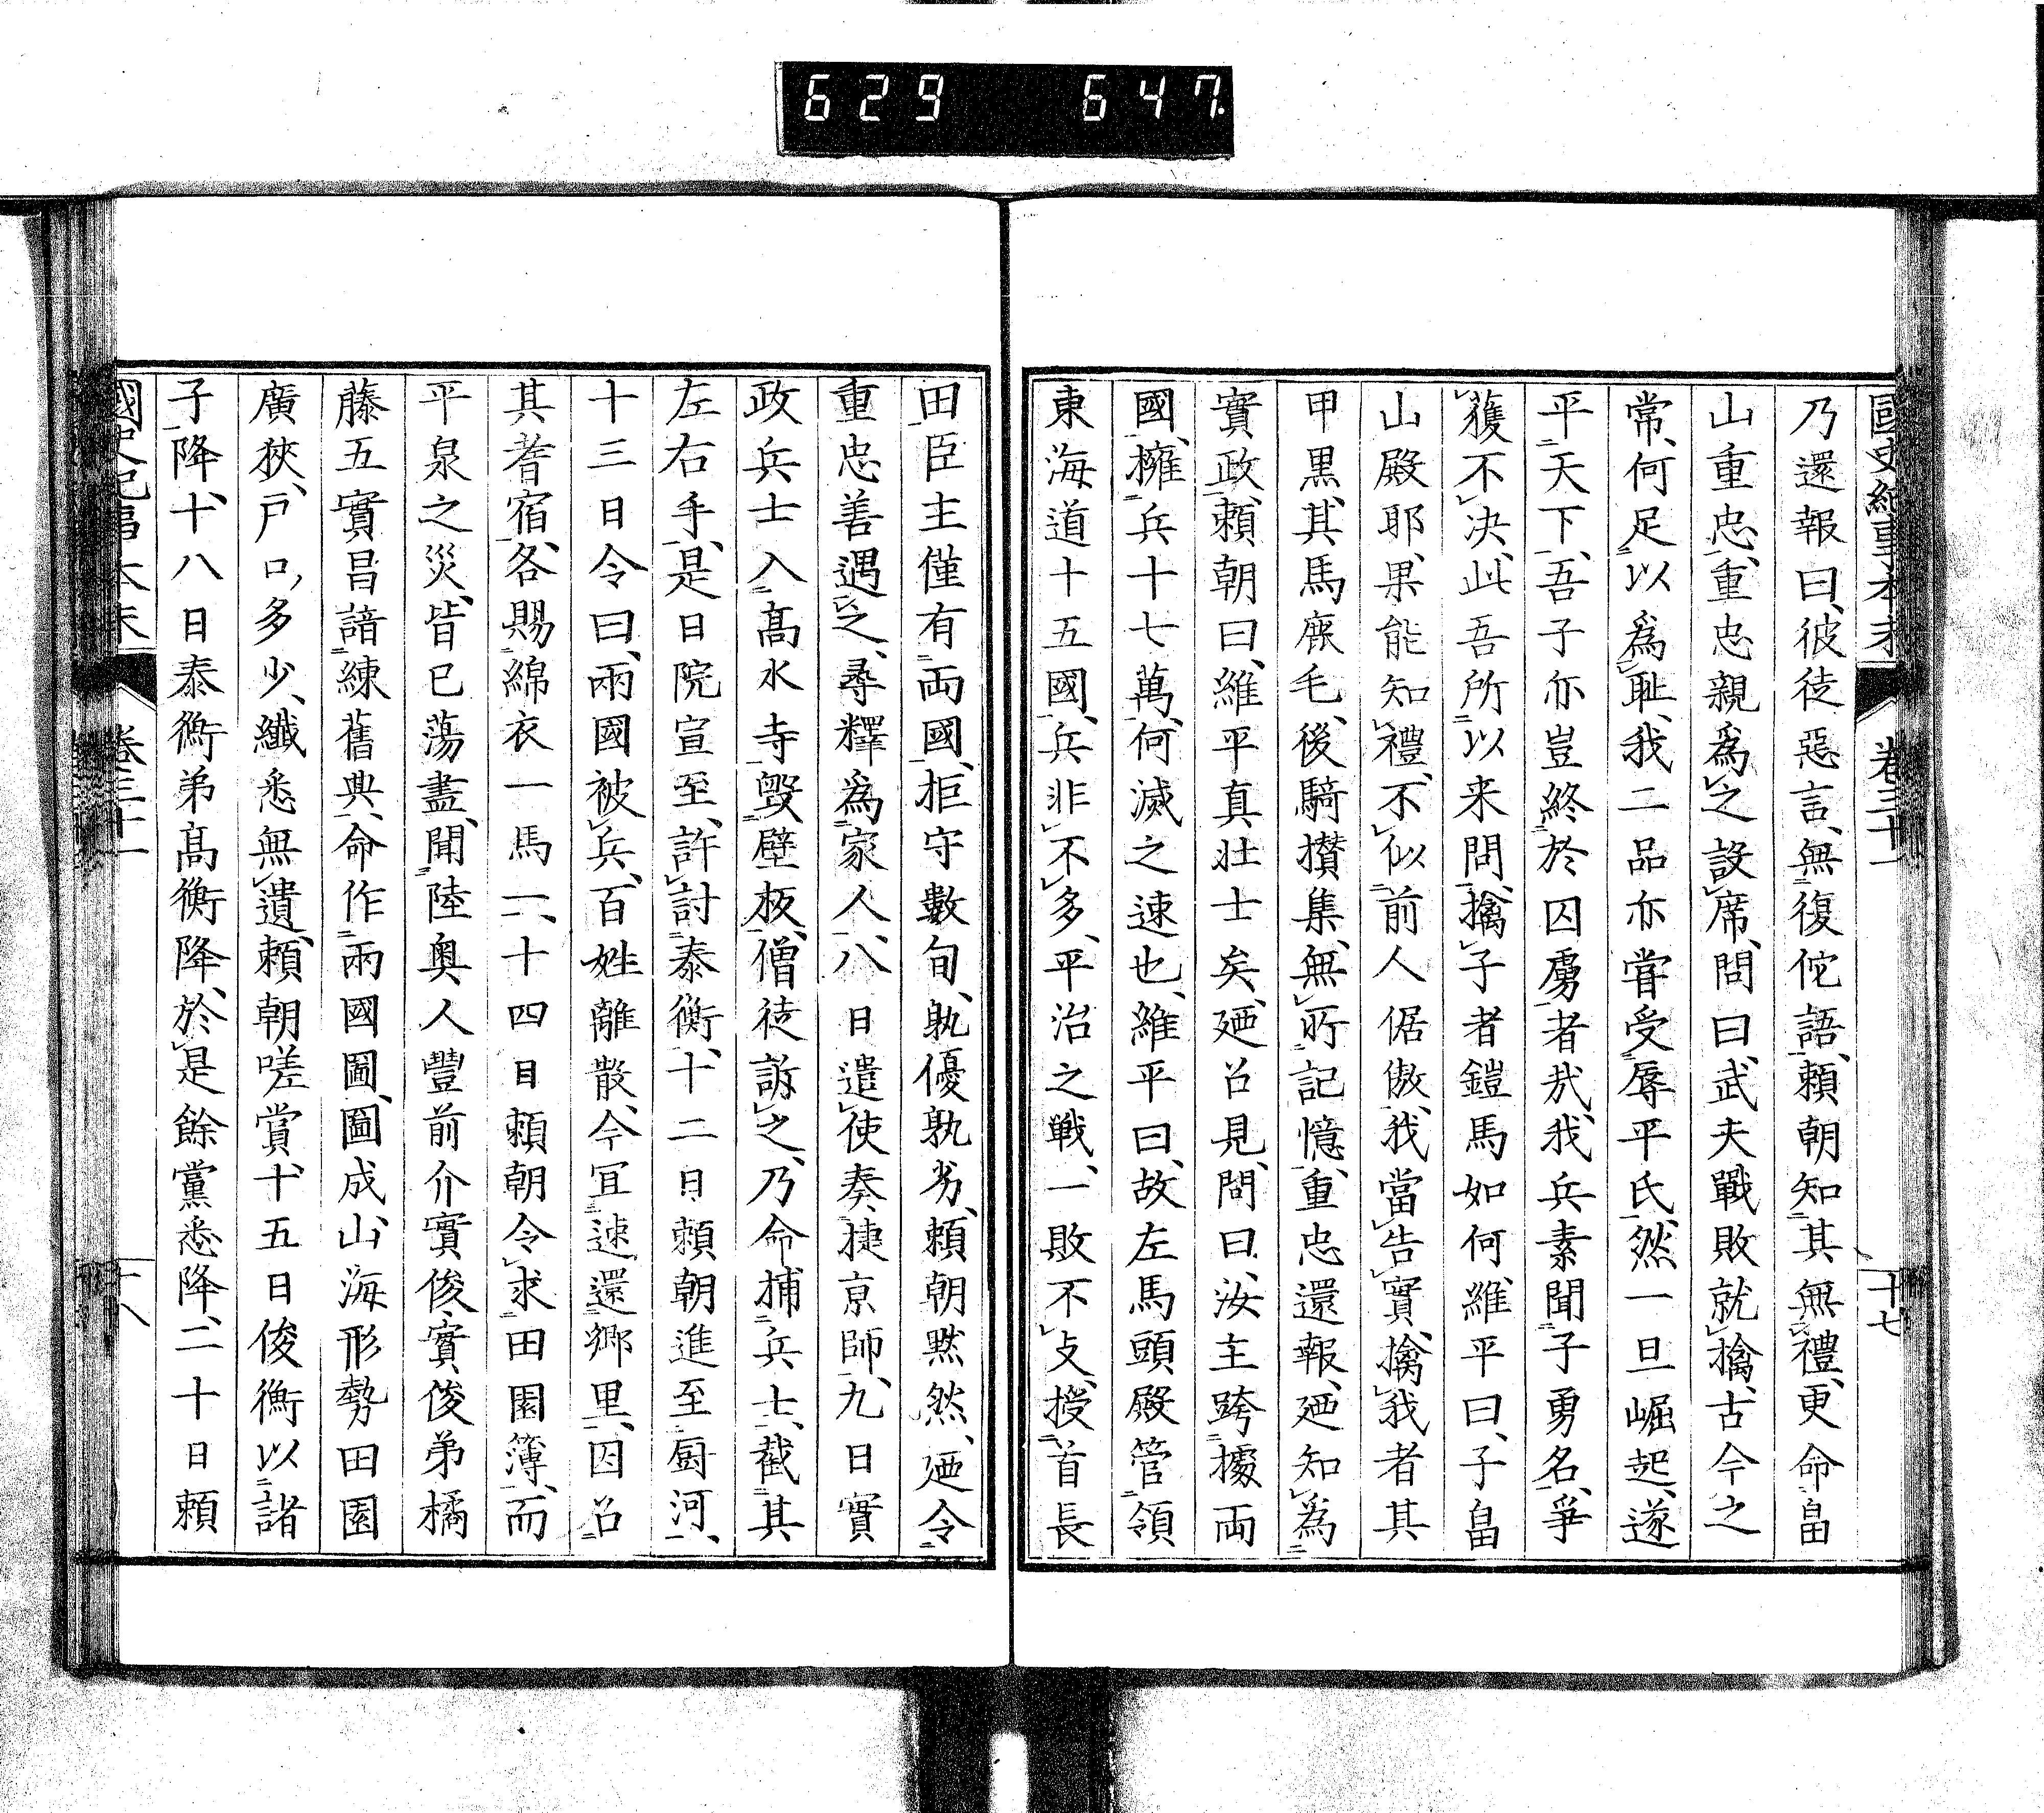 629 647
國史紀事本末 卷三十一 十七
乃還報曰、彼徒惡言、無復佗語、頼朝知其無禮、更命畠
山重忠、重忠親爲之設席、問曰、武夫戰敗就擒、古今之
常、何足以爲耻、我二品亦甞受辱平氏、然一旦崛起、遂
平天下、吾子亦豈終於囚虜者㢤、我兵素聞子勇名、爭
獲不决、此吾所以来問、擒子者鎧馬如何、維平曰、子畠
山殿耶、果能知禮、不似前人倨傲、我當告實、擒我者其
甲黒、其馬鹿毛、後騎攅集、無所記憶、重忠還報、廼知爲
實政、頼朝曰、維平真壮士矣、廼召見、問曰、汝主跨據両
國、擁兵十七萬、何滅之速也、維平曰、故左馬頭殿管領
東海道十五國、兵非不多、平治之戦、一敗不支、授首長
田、臣主僅有両國、拒守數旬、孰優孰劣、頼朝黙然、廼令
重忠善遇之、尋釋爲家人、八日遣使奏捷京師、九日實
政兵士入髙水寺、毀壁板、僧徒訴之、乃命捕兵士、截其
左右手、是日院宣至、許討泰衡、十二日頼朝進至厨河、
十三日令曰、兩國被兵、百姓離散、今冝速還郷里、因召
其耆宿、各賜綿衣一馬一、十四日頼朝令求田園簿、而
平泉之災、皆已蕩盡、聞陸奥人豐前介實俊實俊弟橘
藤五實昌諳練舊典、命作兩國圖、圖成、山海形勢田園
廣狹、戸口多少、纎悉無遺、頼朝嗟賞、十五日俊衡以諸
子降、十八日泰衡弟髙衡降、於是餘黨悉降、二十日頼
國史紀事本末 卷三十一 十八